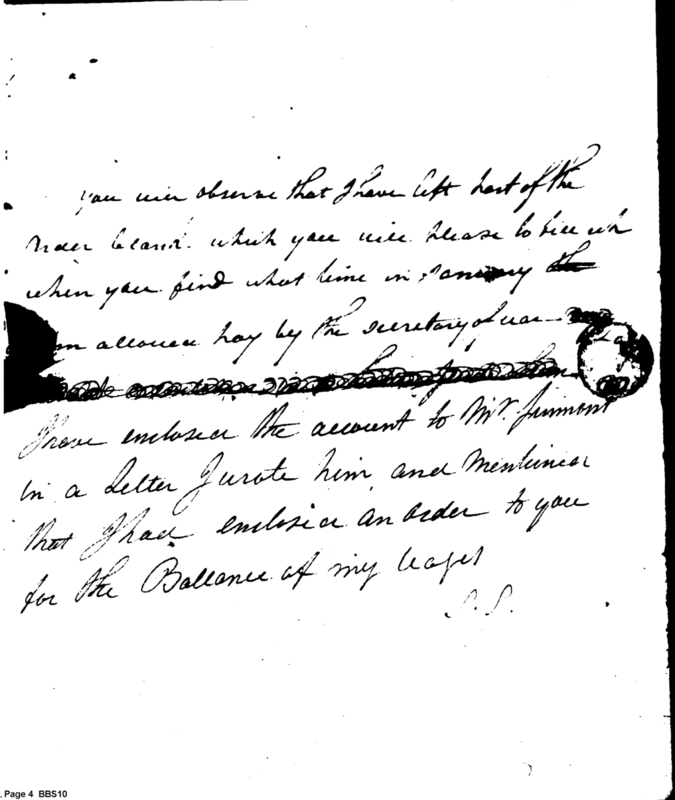 you will observe that I have left part of the
order blank. which you will please to fill up
when you find what time in January
am allowed pay by the secretary of war
I have enclosed the account to Mr. Simmons
in a Letter I wrote him and mentioned
that I had enclosed an order to you
for the Ballance of my wages
S. S.
. Page 4 BBS10